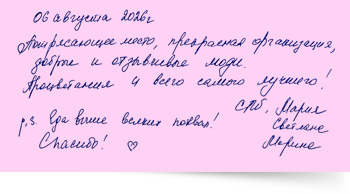 06 августа 2026г
Потрясающее место, прекрасная организация,
добрые и отзывчивые люди.
Процветания и всего самого лучшего!
СПб, Мария
p.s. Еда выше всяких похвал! Светлана
Спасибо! ♡ Марина